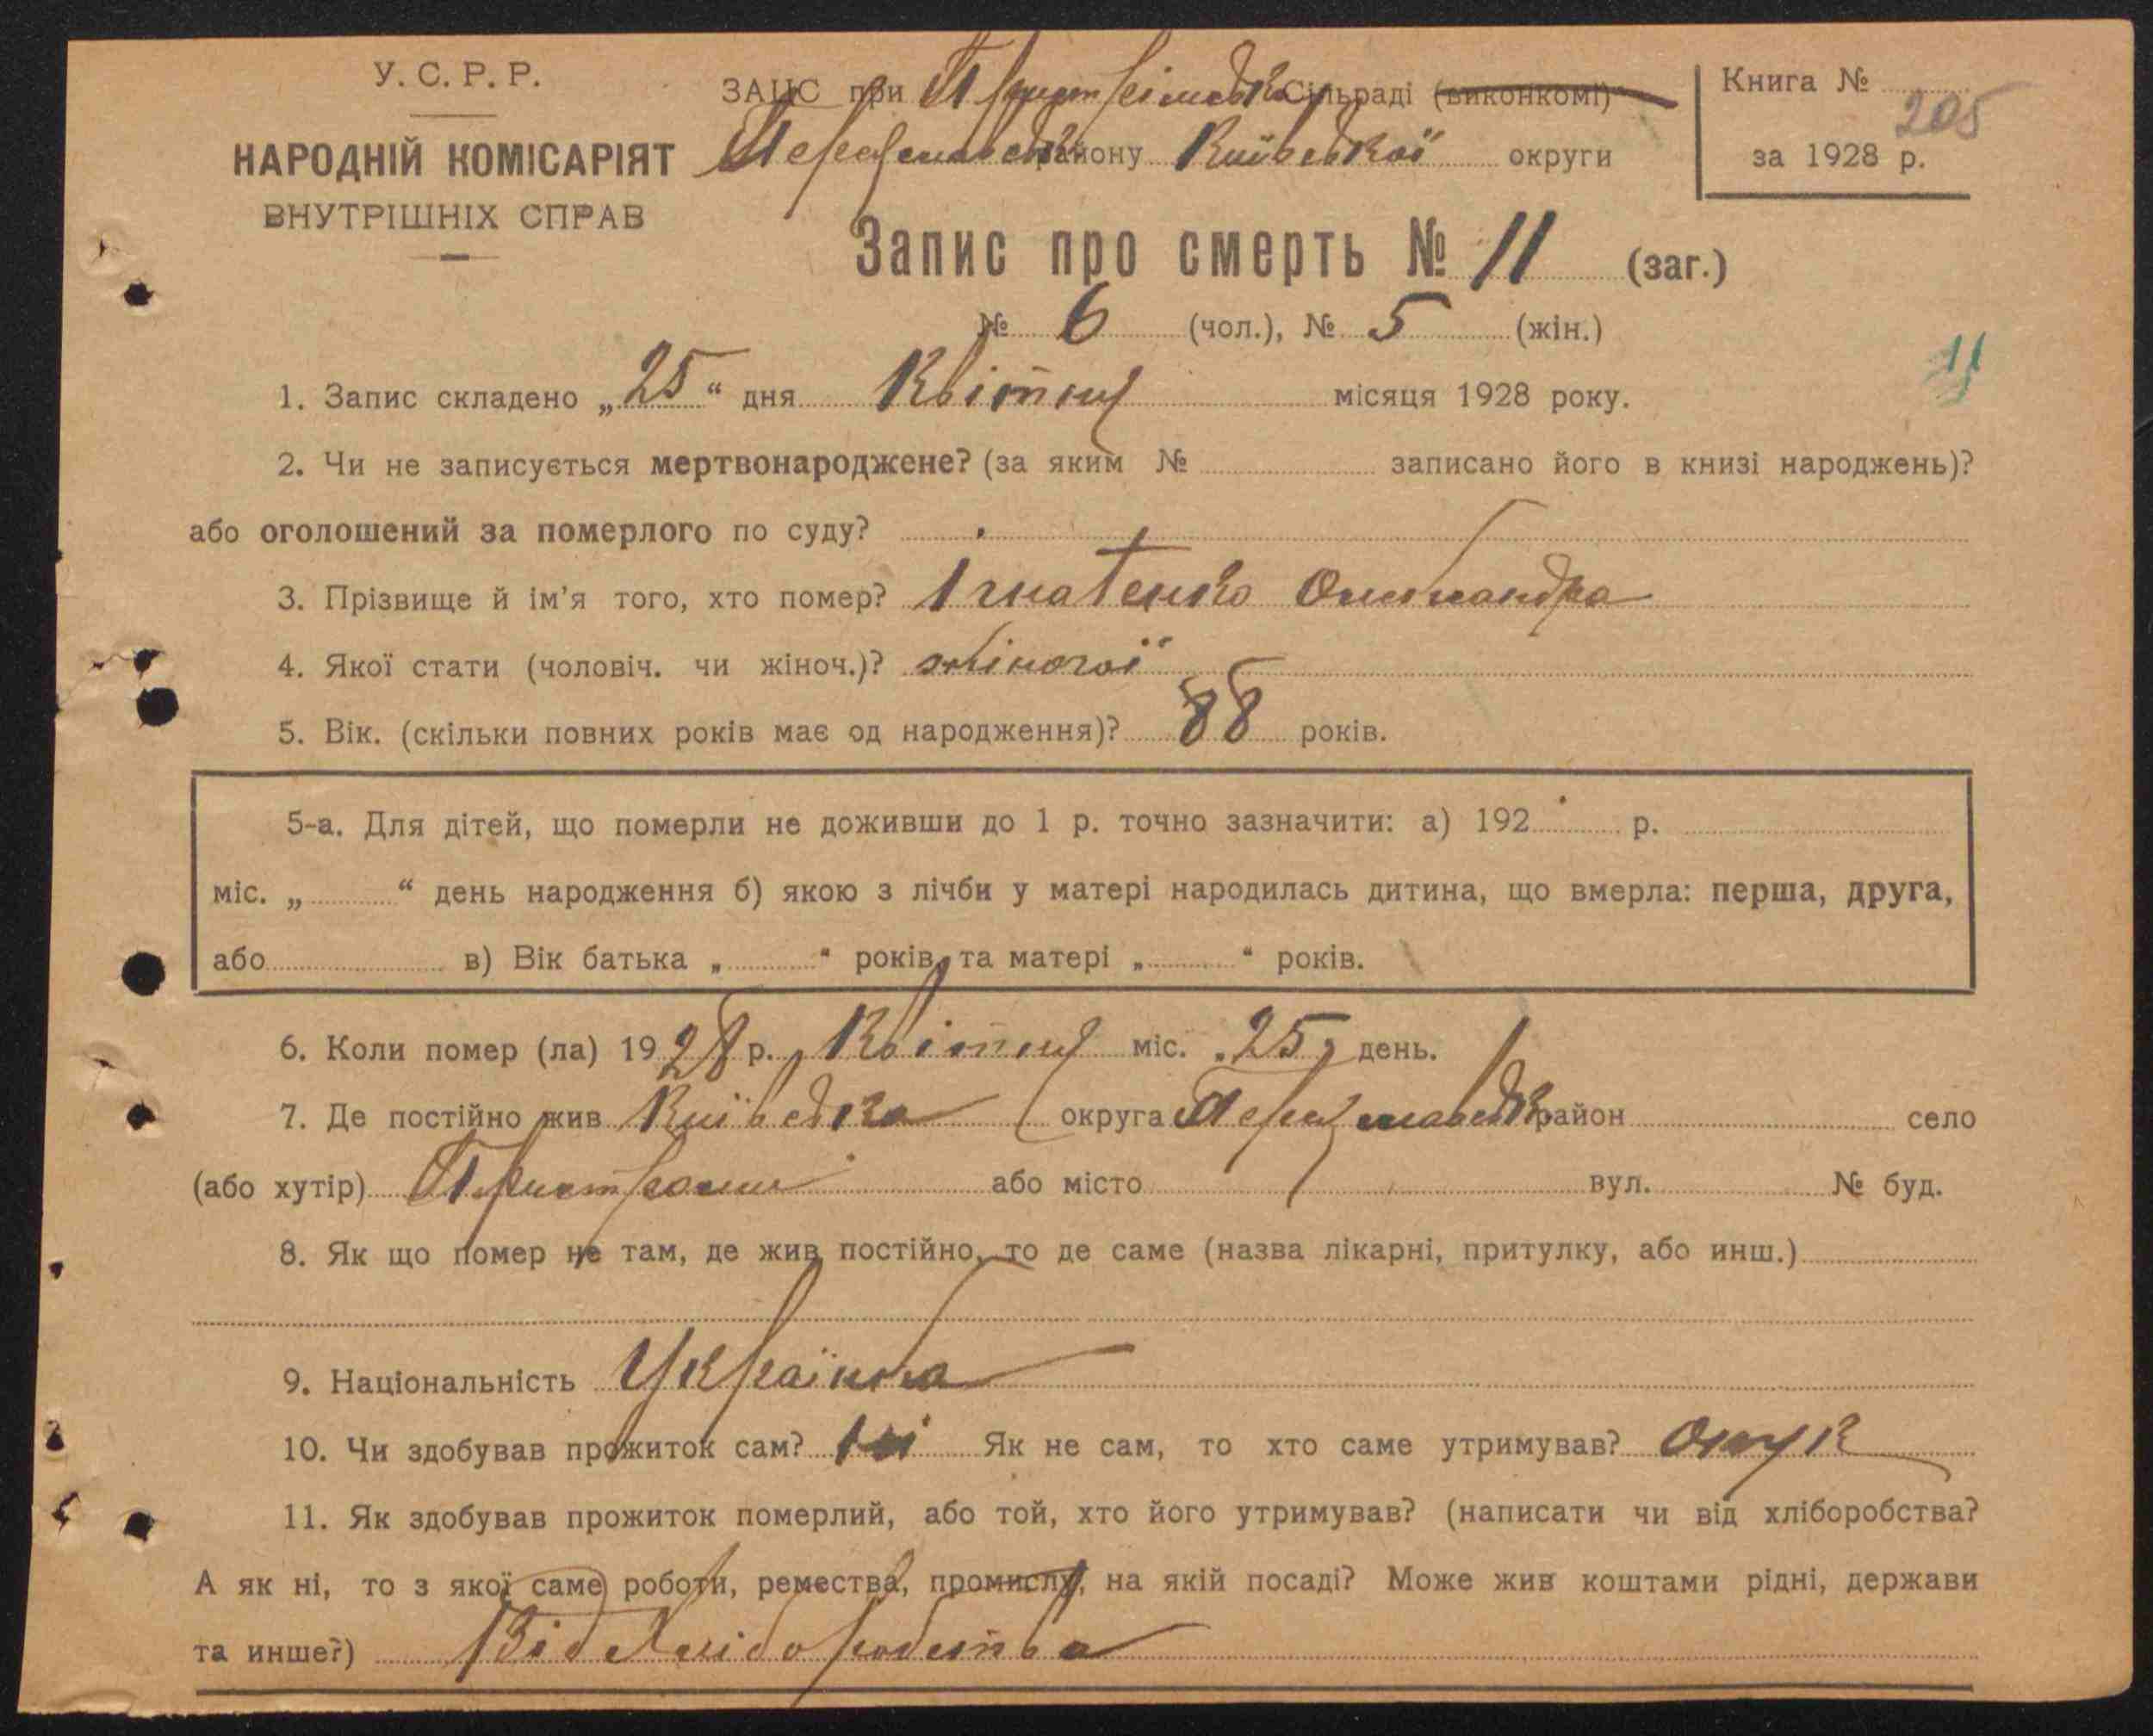 У. С. Р. Р.
НАРОДНІЙ КОМІСАРІЯТ
ВНУТРІШНІХ СПРАВ
ЗАЦС при Пристромській Сільраді (виконкомі)
Переяславськ району Київської округи
Книга № 205
за 1928 р.
Запис про смерть № 11 (заг.)
№ 6 (чол.), № 5 (жін.)
11
1. Запис складено „25“ дня Квітня місяця 1928 року.
2. Чи не записується мертвонароджене? (за яким № записано його в книзі народжень)?
або оголошений за померлого по суду?
3. Прізвище й ім'я того, хто помер? Ігнатенко
4. Якої стати (чоловіч. чи жіноч.)? жіночої
5. Вік. (скільки повних років має од народження)? 88 років.
5-а. Для дітей, що померли не доживши до 1 р. точно зазначити: а) 192 р.
міс. „ “ день народження б) якою з лічби у матері народилась дитина, що вмерла: перша, друга,
або в) Вік батька „ “ років, та матері „ “ років.
6. Коли помер (ла) 1928 р. Квітня міс. „25„ день.
7. Де постійно жив Київська округа Переяславськ район село
(або хутір) Пристроми або місто вул. № буд.
8. Як що помер не там, де жив постійно, то де саме (назва лікарні, притулку, або инш.)
9. Національність Українка
10. Чи здобував прожиток сам? ні Як не сам, то хто саме утримував? Онук
11. Як здобував прожиток померлий, або той, хто його утримував? (написати чи від хліборобства?
А як ні, то з якої саме роботи, ремества, промислу, на якій посаді? Може жив коштами рідні, держави
та инше?) Від Хліборобства